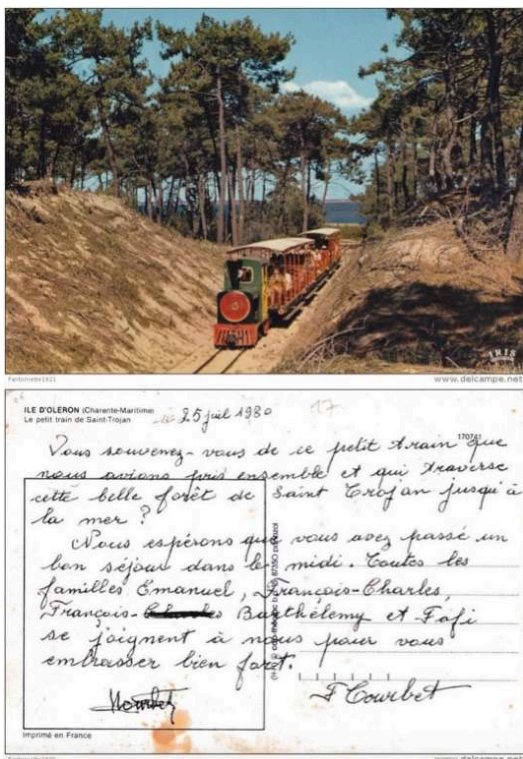 IRIS
Fantoinette1921
www.delcampe.net
ILE D'OLERON (Charente-Maritime)
Le petit train de Saint-Trojan
le 25 juil 1980
17
170741
Vous souvenez-vous de ce petit train que
nous avions pris ensemble et qui traverse
cette belle forêt de Saint Trojan jusqu'à
la mer ?
Nous espérons que vous avez passé un
bon séjour dans le midi. Toutes les
familles Emanuel, François-Charles,
François-Barthélemy et Fafi
se joignent à nous pour vous
embrasser bien fort.
F Courbet
Imprimé en France
Fantoinette1921
www.delcampe.net